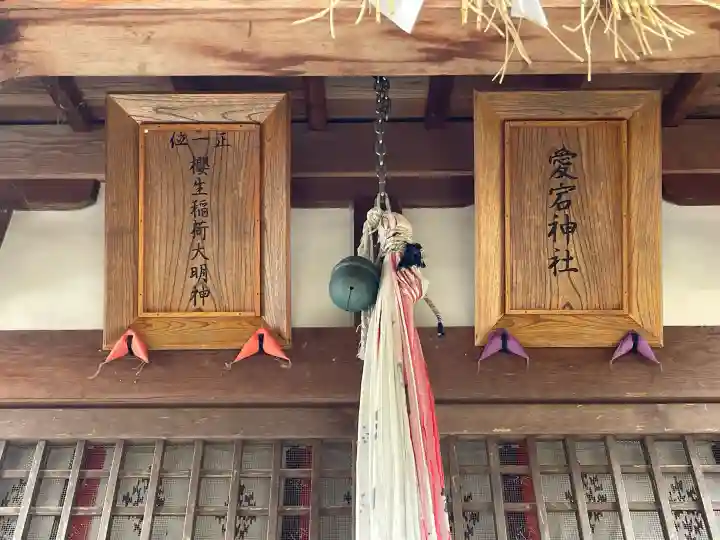 愛宕神社
正一位
櫻生稲荷大明神